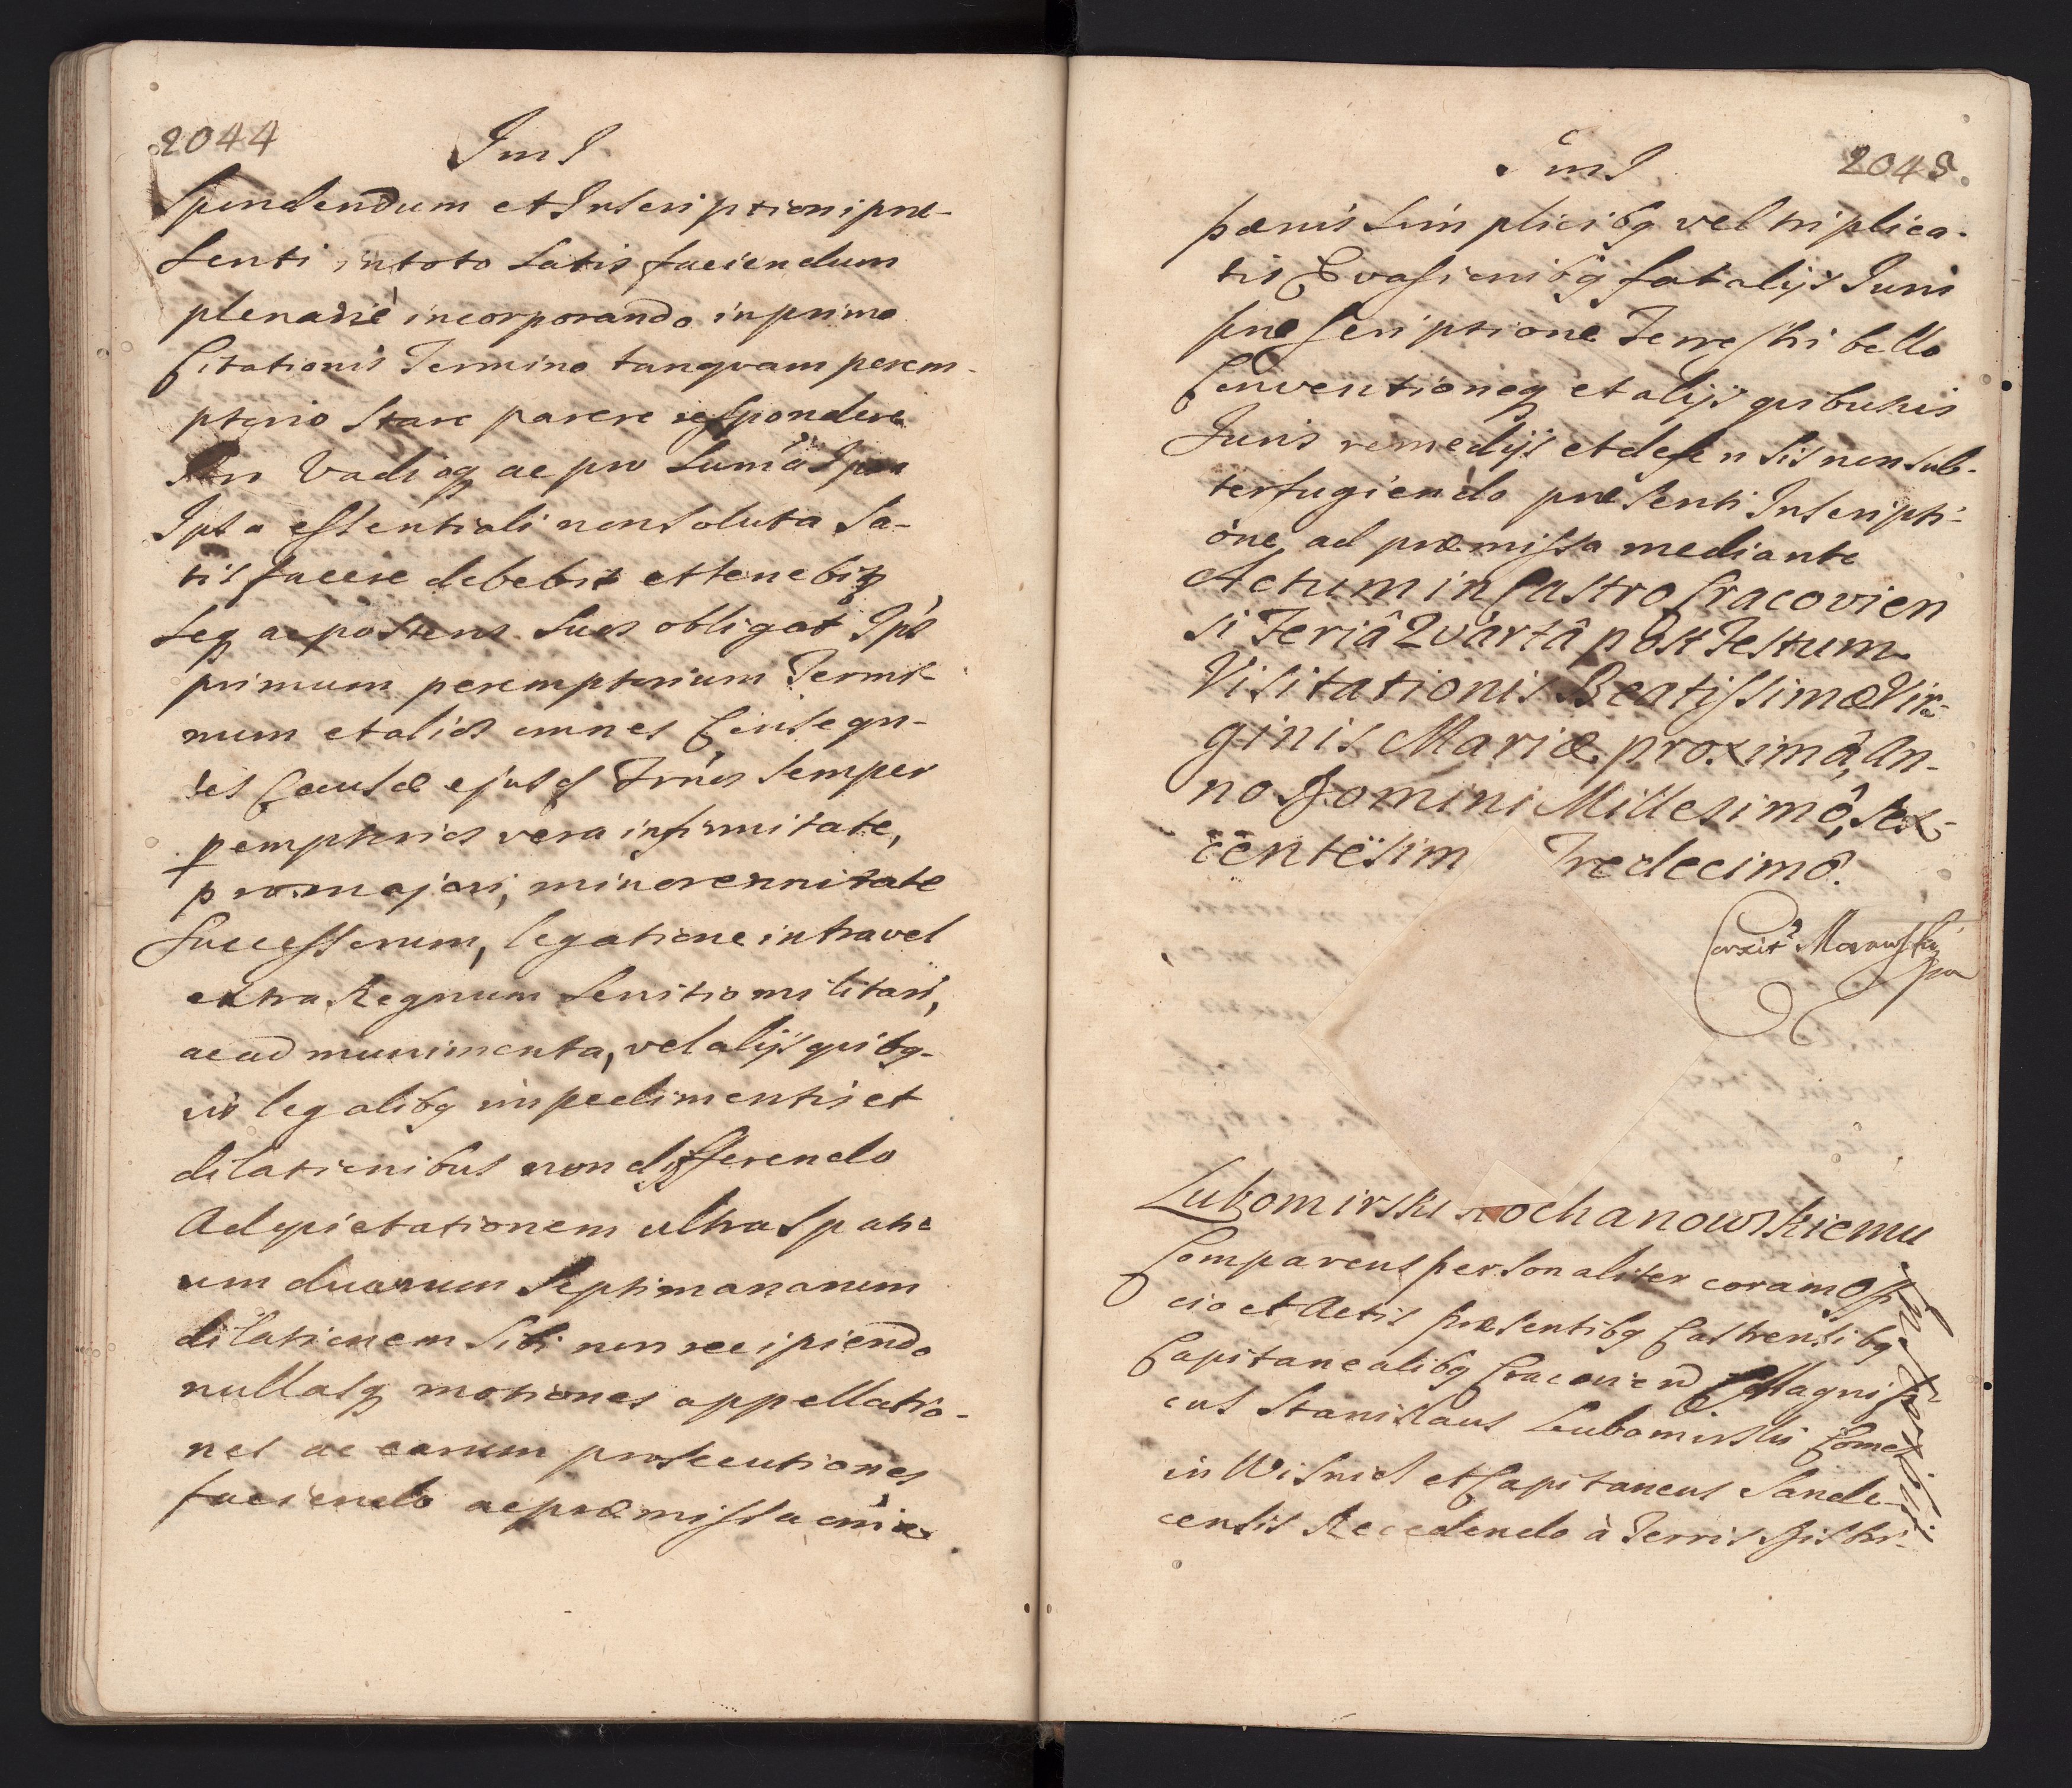 2044
Im I
spondendum et Inscriptioni præ-
senti in toto satis faciendum
plenariè incorporando in primo
Citationis Termino tanqvam perem-
ptorio stare parere respondere
Vadioq ac pro suma
Ipsa essentiali non soluta sa-
tis facere debebit et tenebitq
seq ac posteros suos obligat Ipsũ
primum peremptorium Termi-
num et alios omnes Conseqn-
tes Causæ ejusd Trnos semper
pemptorios vera infirmitate,
pro majori, minorennitate
Successorum, legatione intra vel
extra Regnum servitio militari,
ac ad munimenta, vel alijs qvibg-
vis legalibq impedimentis et
dilationibus non differendo
Ad qvietationem ultra spati-
um duarum Septimananum
dilationem sibi non recipiendo
nullasq motiones appellatio-
nes ac earum prosecutiones
faciendo ac præmissa omia
Im I
2045.
pænis simplicibq vel triplica-
tis Evasionibq fatalijs Juris
præscriptione Terrestri bello
Conventioneq et alijs qvibusvis
Juris remedijs et defensis non sub-
terfugiendo præsenti Inscripti-
one ad præmissa mediante
Actum in Castro Cracovien
si Feriâ Qvartâ post Festum
Visitationis Beatissimæ Vir-
ginis Mariæ proximâ, An-
no Domini Millesimô, Sex-
centesim Tredecimô.
Lubomirski Kochanowskiemu
Comparens personaliter coram Offi
cio et Actis præsentibq Castrensibq
Capitanealibq Cracovien Magnifi-
cus Stanislaus Lubomirski Comes
in Wisnicz et Capitaneus Sande-
censis Recedendo à Terris Distri-